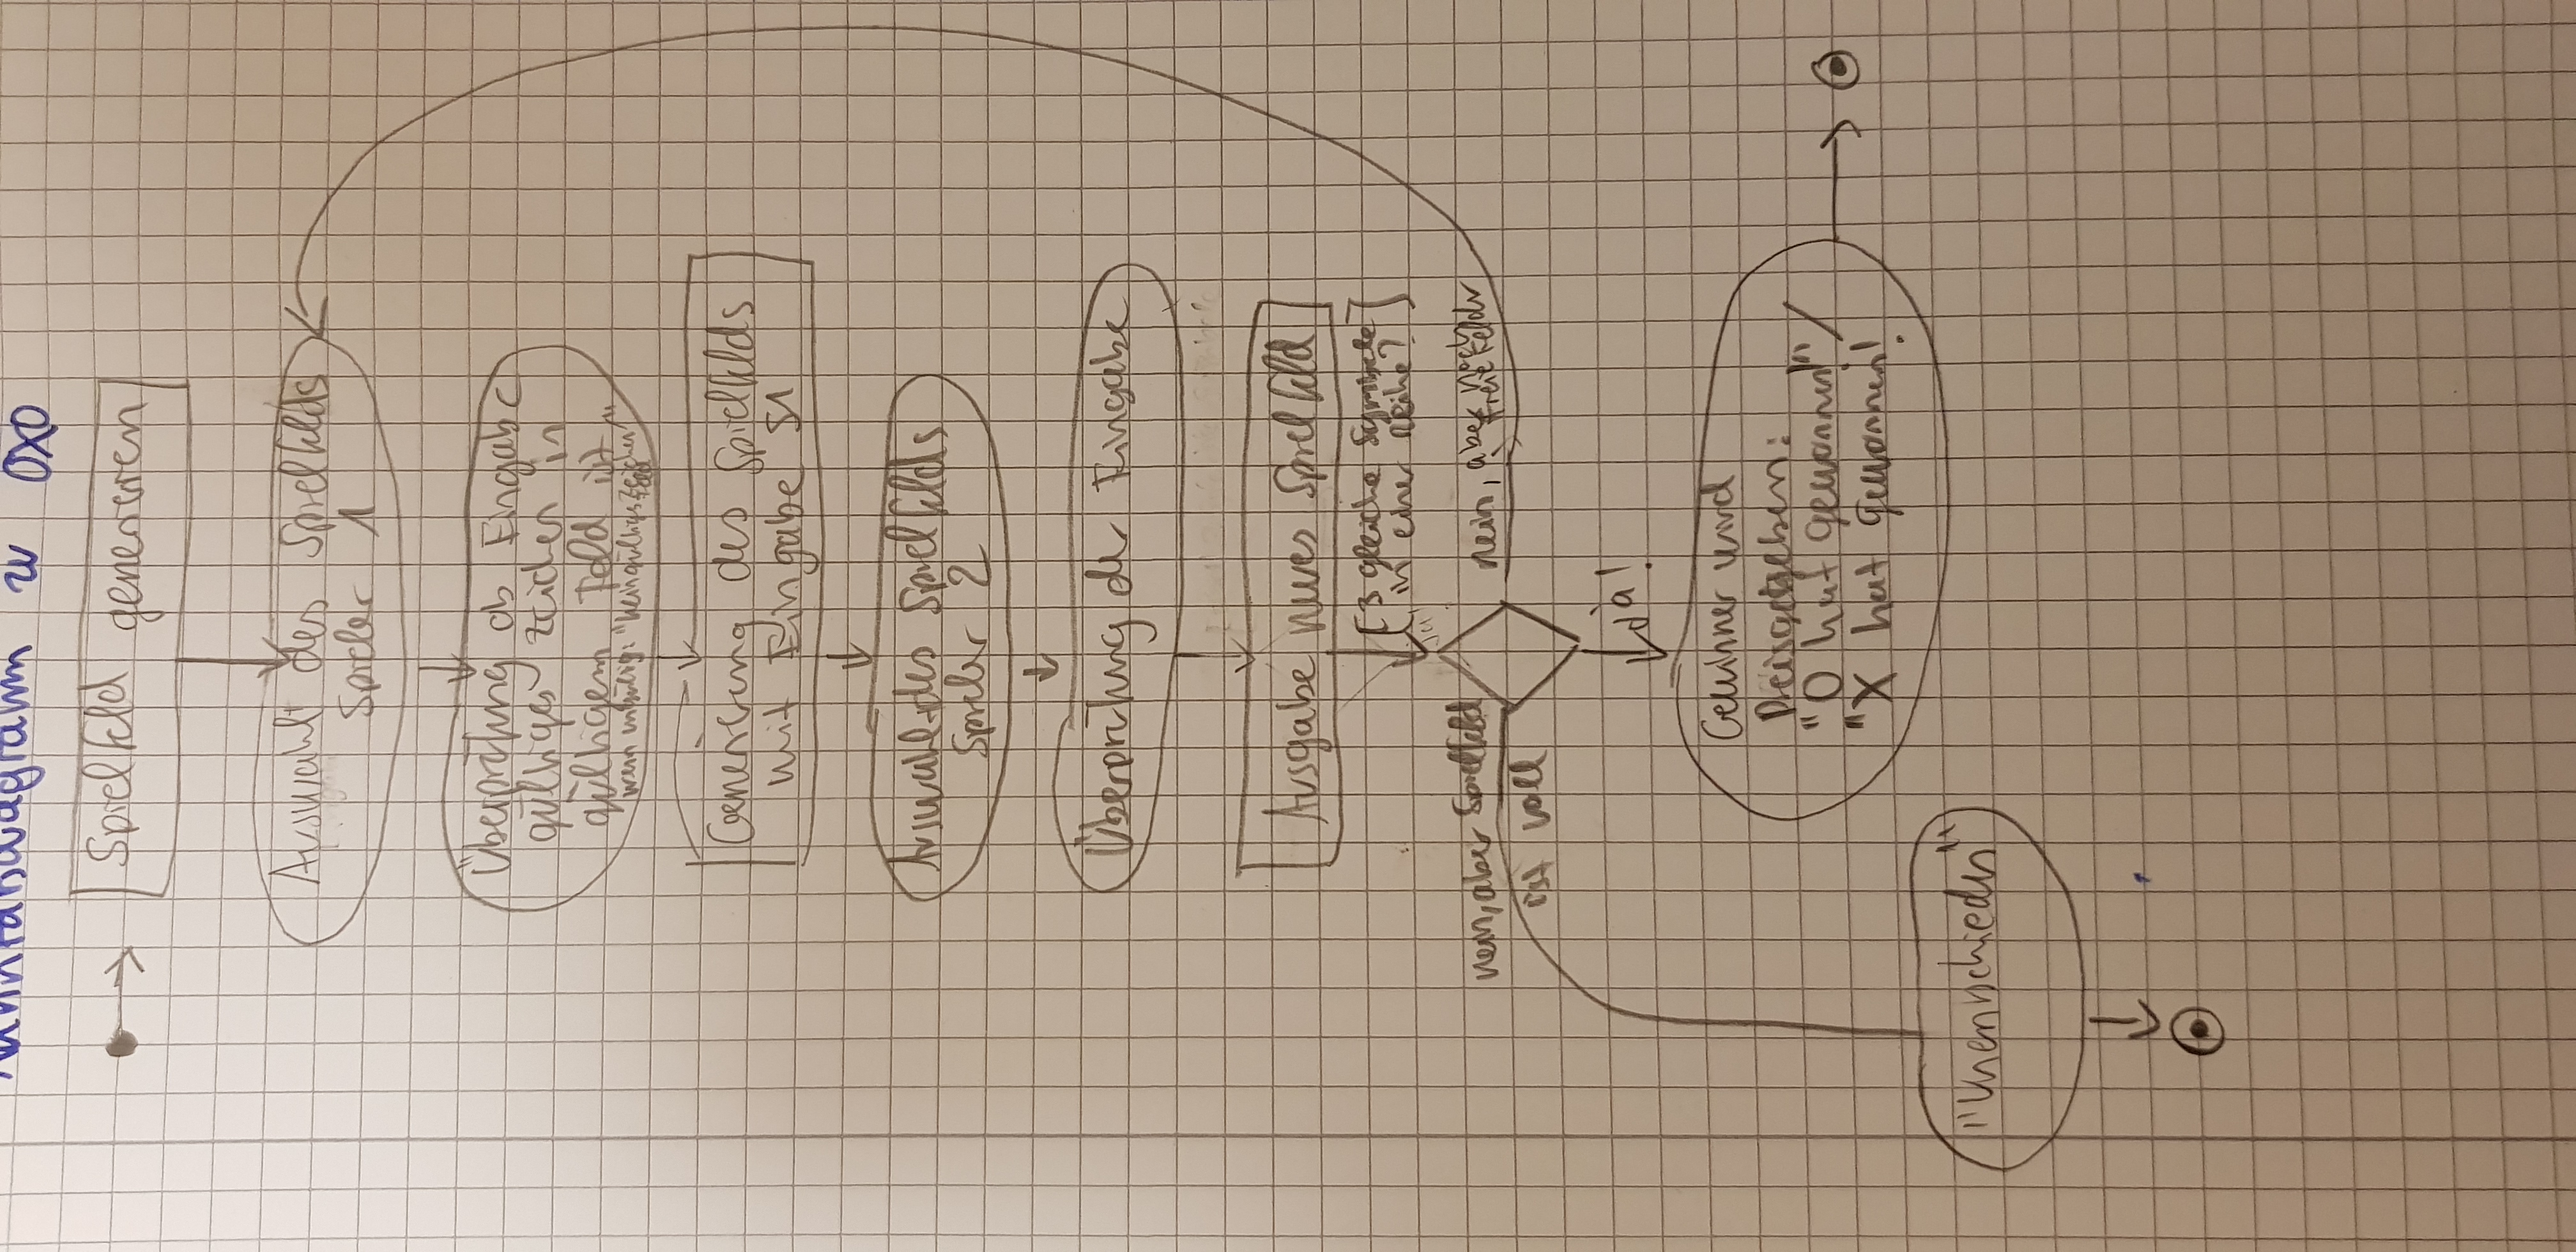 zu OXO
Spielfeld generieren
Auswahl des Spielfelds
Spieler 1
Überprüfung ob Eingabe
gültiges Zeichen in
gültigem Feld ist
wenn ungültig: "kein gültiges Zeichen/
Feld"
Generierung des Spielfelds
mit Eingabe S1
Auswahl des Spielfelds
Spieler 2
Überprüfung der Eingabe
Ausgabe neues Spielfeld
[3 gleiche Symbole
in einer Reihe?]
nein, aber Spielfeld
ist voll
nein, aber noch
freie Felder
ja!
Gewinner wird
Preisgegeben:
"O hat gewonnen!" /
"X hat gewonnen!
"Unentschieden"